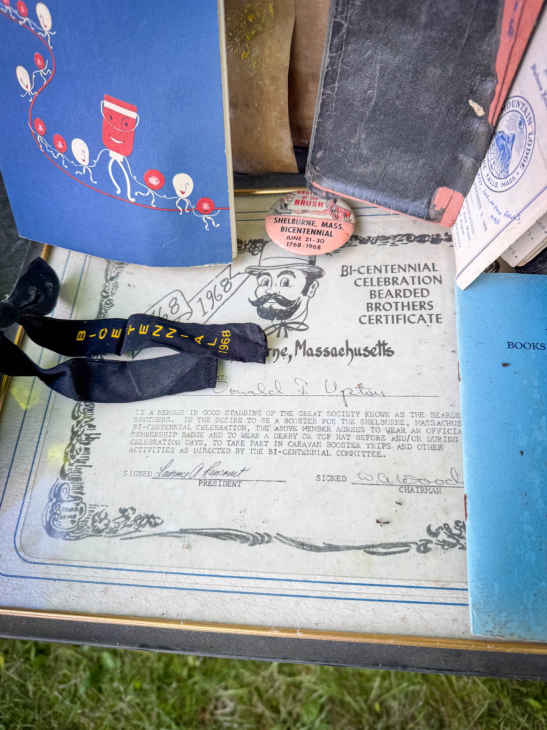 BRUSH
SHELBURNE, MASS.
BICENTENNIAL
JUNE 21-30
1768-1968
1768
1968
BI-CENTENNIAL
CELEBRATION
BEARDED
BROTHERS
CERTIFICATE
BICENTENNIAL 1968
Massachusetts
Donald T. Upton
IS A MEMBER IN GOOD STANDING OF THE GREAT SOCIETY KNOWN AS THE BEARDED
BROTHERS. IN THE DESIRE TO BE A BOOSTER FOR THE SHELBURNE, MASSACHUS
BI-CENTENNIAL CELEBRATION, THE ABOVE MEMBER AGREES TO WEAR AN OFFICIA
MEMBERSHIP BADGE AND TO WEAR A DERBY OR TOP HAT BEFORE AND/OR DURING
CELEBRATION DAYS, TO TAKE PART IN CARAVAN BOOSTER TRIPS AND OTHER
ACTIVITIES AS DIRECTED BY THE BI-CENTENNIAL COMMITTEE.
SIGNED
PRESIDENT
SIGNED
CHAIRMAN
MOUNTAIN LODGE
BOOKS